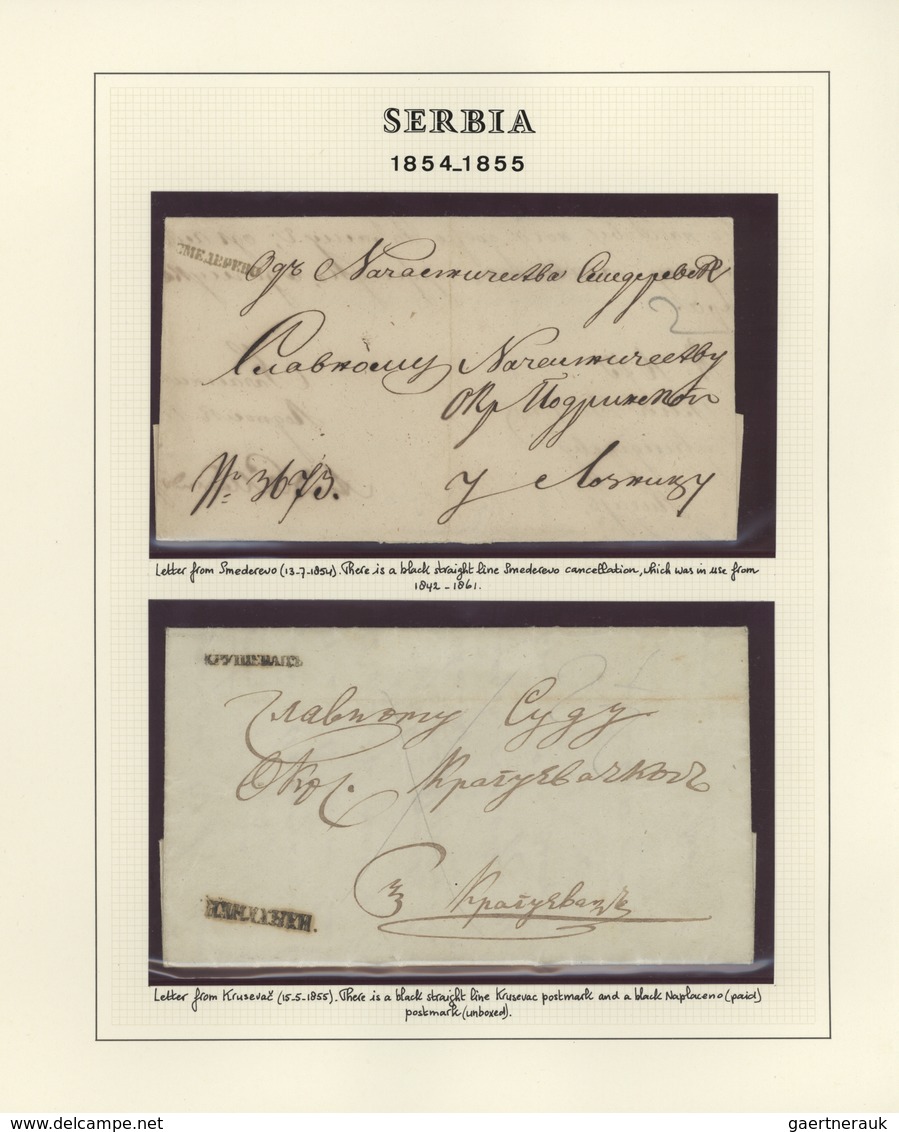 SERBIA
1854-1855
СМЕДЕРЕВО
Одъ Началничества Смедеревск
2
Славному Началничеству
Окр Подринског
№ 3673.
у Лозницу
Letter from Smederevo (13-7-1854). There is a black straight line Smederevo cancellation, which was in use from
1842-1861.
КРУШЕВАЦЪ
Главному Суду
Окр. Крагуевачкомъ
у Крагуевацъ
Letter from Krusevač (15-5-1855). There is a black straight line Krusevac postmark and a black Naplaceno (paid)
postmark (unboxed).
www.delcampe.net
gaertnerauk